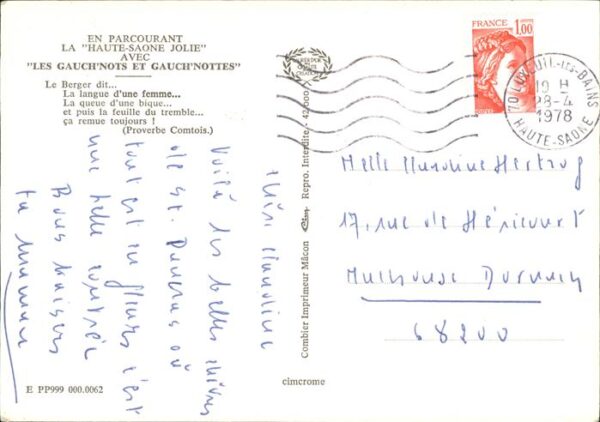 EN PARCOURANT
LA "HAUTE-SAONE JOLIE"
AVEC
"LES GAUCH'NOTS ET GAUCH'NOTTES"
Le Berger dit...
La langue d'une femme...
La queue d'une bique...
et puis la feuille du tremble...
ça remue toujours !
(Proverbe Comtois.)
Voilà les belles chèvres
de St. où
tout est en fleurs c'est
une belle contrée
Bons baisers
ta maman
E PP999 000.0062
Combier Imprimeur Mâcon
Repro. Interdite - 42.000
cimcrome
FRANCE
1,00
POSTES
70 LUXEUIL-LES-BAINS
19 H
28-4
1978
HAUTE-SAONE
Melle Hertzog
17, rue de Héricourt
Mulhouse Dornach
68200